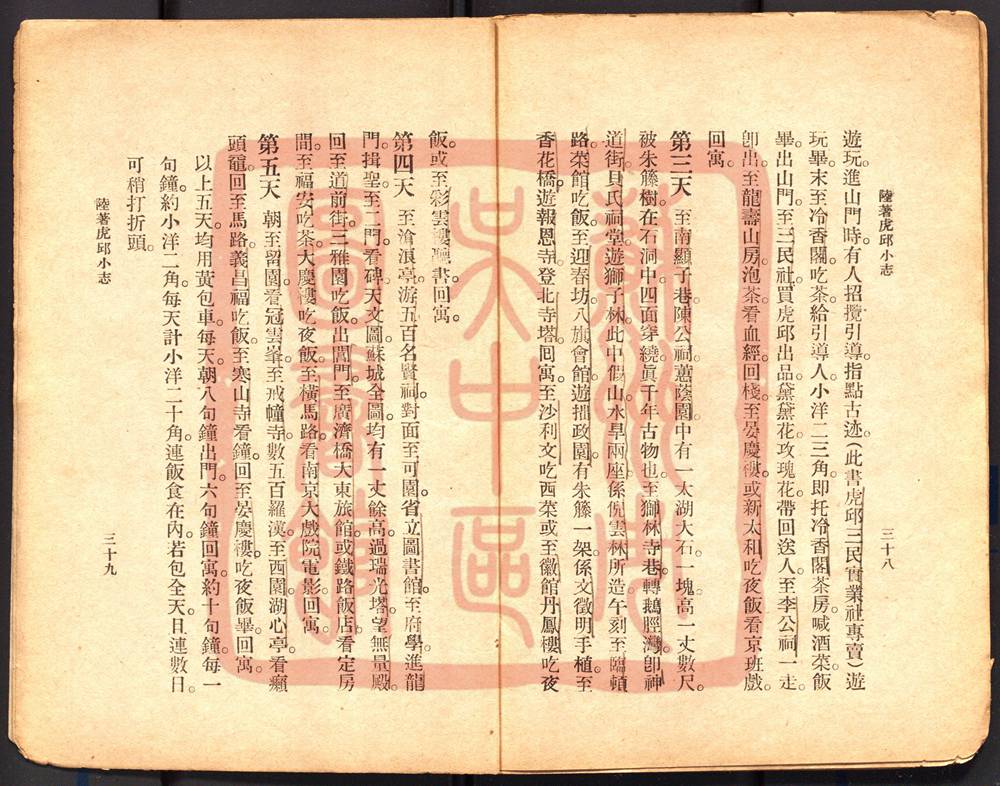 陸著虎邱小志
三十八
遊玩。進山門時。有人招攬引導。指點古迹(此書虎邱三民實業社專賣)遊
玩畢。末至冷香閣。吃茶。給引導人小洋二三角。即托冷香閣茶房。喊酒菜。飯
畢。出山門。至三民社。買虎邱出品黛黛花玫瑰花。帶回送人。至李公祠一走。
卽出。至龍壽山房。泡茶。看血經。回棧。至晏慶樓。或新太和吃夜飯。看京班戲。
回寓。
第三天　至南顯子巷。陳公祠。蕙蔭園。中有一太湖大石一塊。高一丈數尺。
被朱籐樹。在石洞中四面穿繞。眞千年古物也。至獅林寺巷。轉鵝脛灣。卽神
道街。貝氏祠堂。遊獅子林。此中假山。水旱兩座。係倪雲林所造。午刻。至臨頓
路。菜館吃飯。至迎春坊。八旗會館。遊拙政園。有朱籐一架。係文徵明手植。至
香花橋。遊報恩寺。登北寺塔。回寓。至沙利文吃西菜。或至徽館丹鳳樓吃夜
飯。或至彩雲樓聽書。回寓。
第四天　至滄浪亭。游五百名賢祠。對面至可園。省立圖書館。至府學。進龍
門。揖聖。至二門看碑。天文圖。蘇城全圖。均有一丈餘高。過瑞光塔。望無量殿。
回至道前街。三雅園吃飯。出閶門。至廣濟橋大東旅館。或鐵路飯店。看定房
間。至福安吃茶。大慶樓吃夜飯。至橫馬路。看南京大戲院電影。回寓。
第五天　朝至留園。看冠雲峯。至戒幢寺。數五百羅漢。至西園。湖心亭。看癩
頭黿。回至馬路。義昌福吃飯。至寒山寺看鐘。回至晏慶樓。吃夜飯畢。回寓。
以上五天。均用黃包車。每天。朝八句鐘出門。六句鐘回寓。約十句鐘。每一
句鐘。約小洋二角。每天計小洋二十角。連飯食在內。若包全天。且連數日。
可稍打折頭。
陸著虎邱小志
三十九